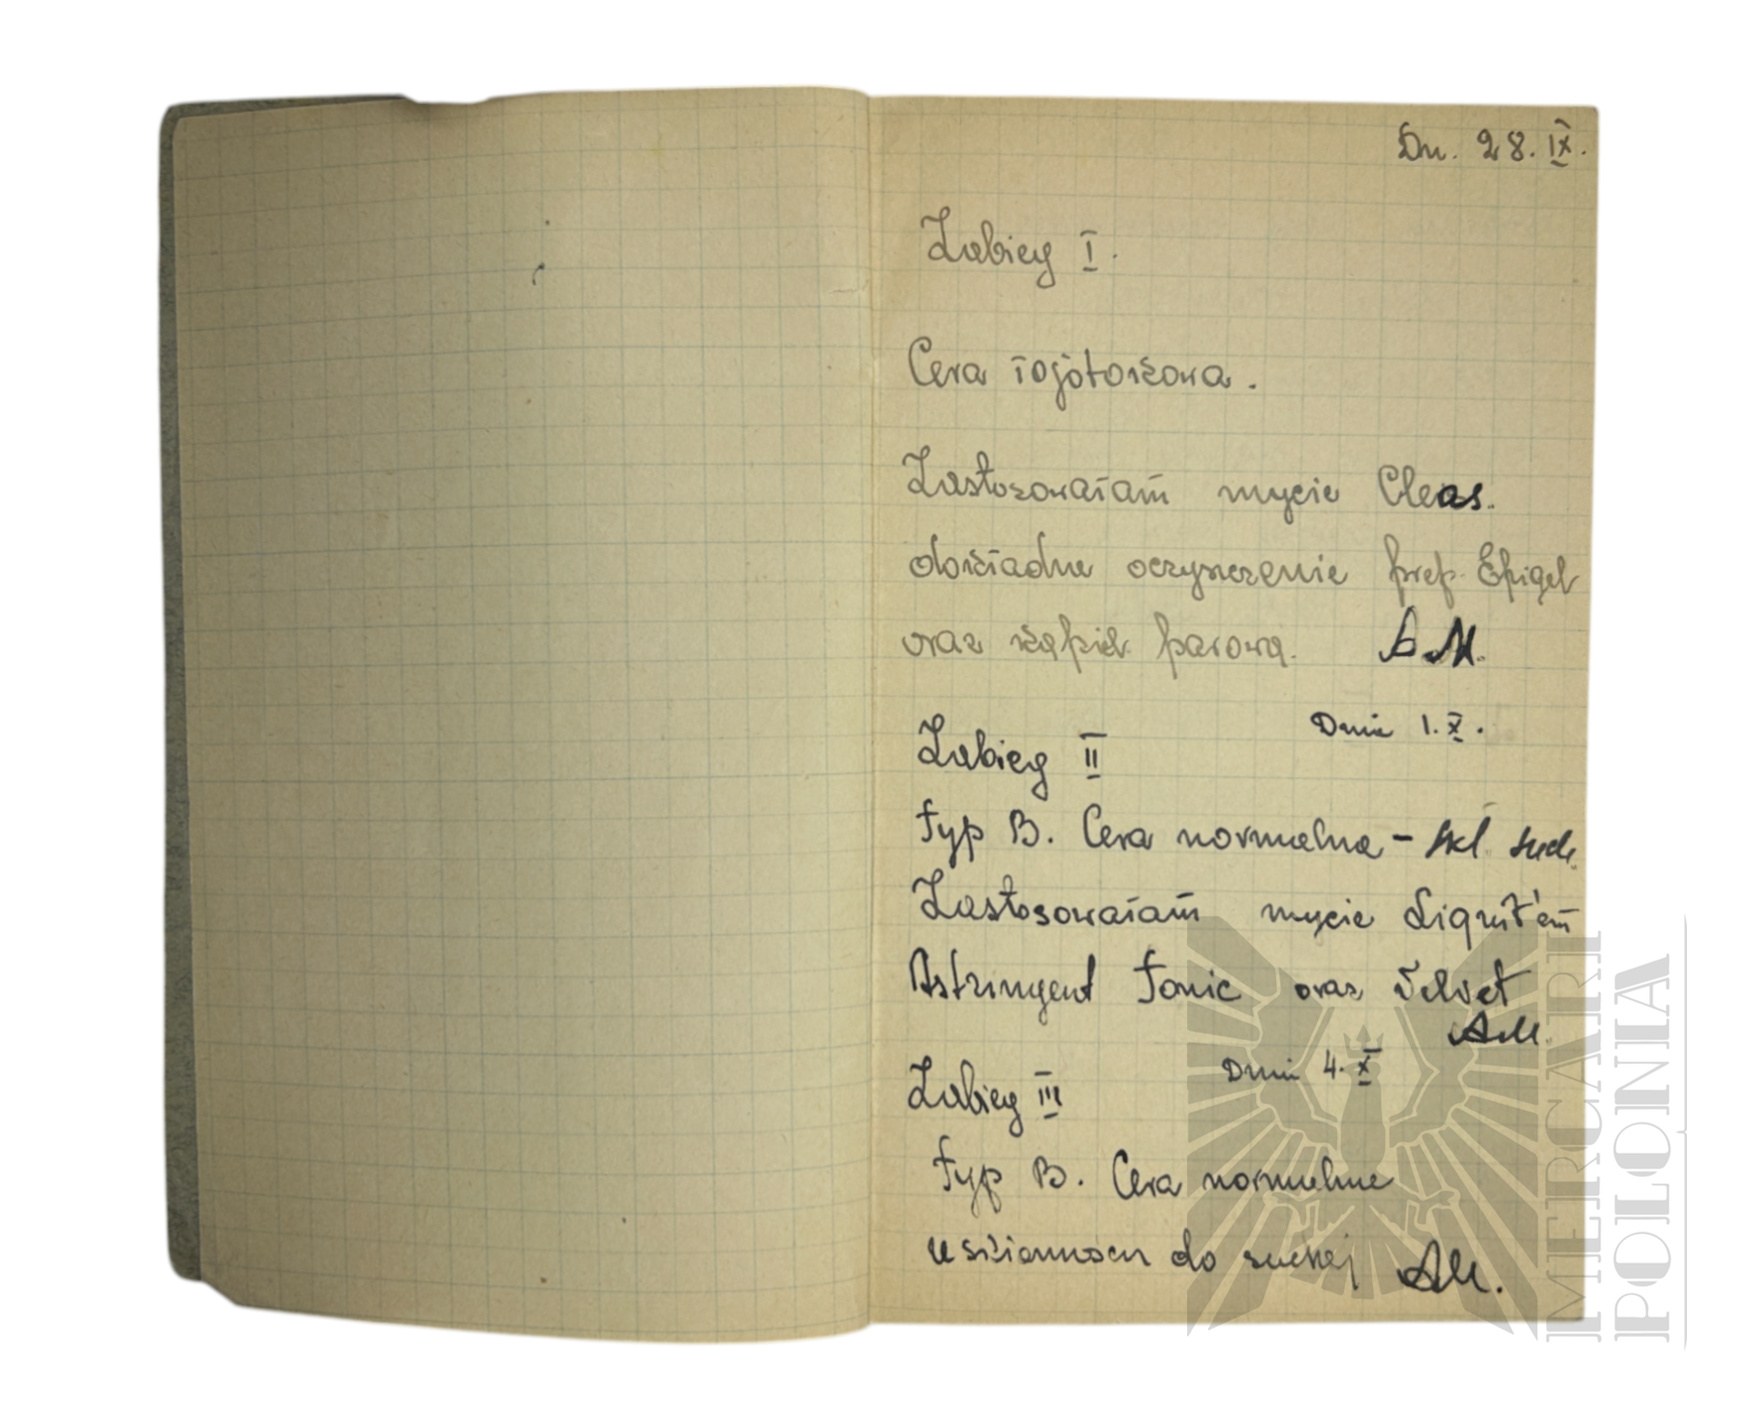 Dn. 28. IX.
Zabieg I.
Cera łojotokowa.
Zastosowałam mycie Cleas.
dokładne oczyszczenie prep. Epigel
oraz kąpiel parowa.
Zabieg II
Dnia 1. X.
Typ B. Cera normalna - skł. such.
Zastosowałam mycie Liquit'em
Astringent Tonic oraz Velvet
AM.
Zabieg III
Dnia 4. X
Typ B. Cera normalna
o skłonności do suchej AM.
MERCARI
POLONIA